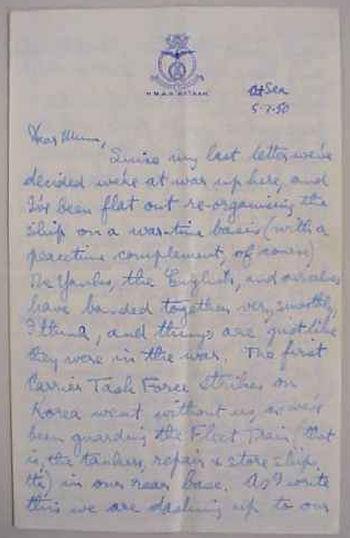 H.M.A.S. BATAAN
At Sea
5.7.50
Dear Mum,
Since my last letter we've
decided we're at war up here, and
I've been flat out re-organising the
ship on a war-time basis (with a
peacetime complement, of course)
The Yanks, the English, and ourselves
have banded together very smoothly,
I think, and things are just like
they were in the war. The first
Carrier Task Force strikes on
Korea went without us, as we've
been guarding the Fleet Train (that
is, the tankers, repair & store ship,
etc) in our rear base. As I write
this we are dashing up to our